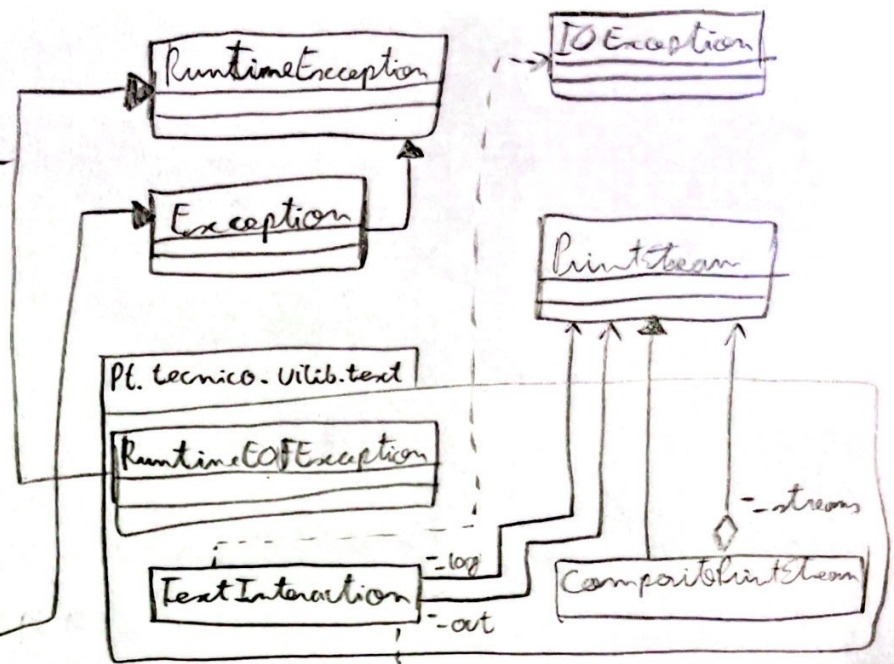 RuntimeException
IOException
Exception
PrintStream
Pt.tecnico.uilib.text
RuntimeEOFException
-_streams
-_log
TextInteraction
CompositePrintStream
-_out